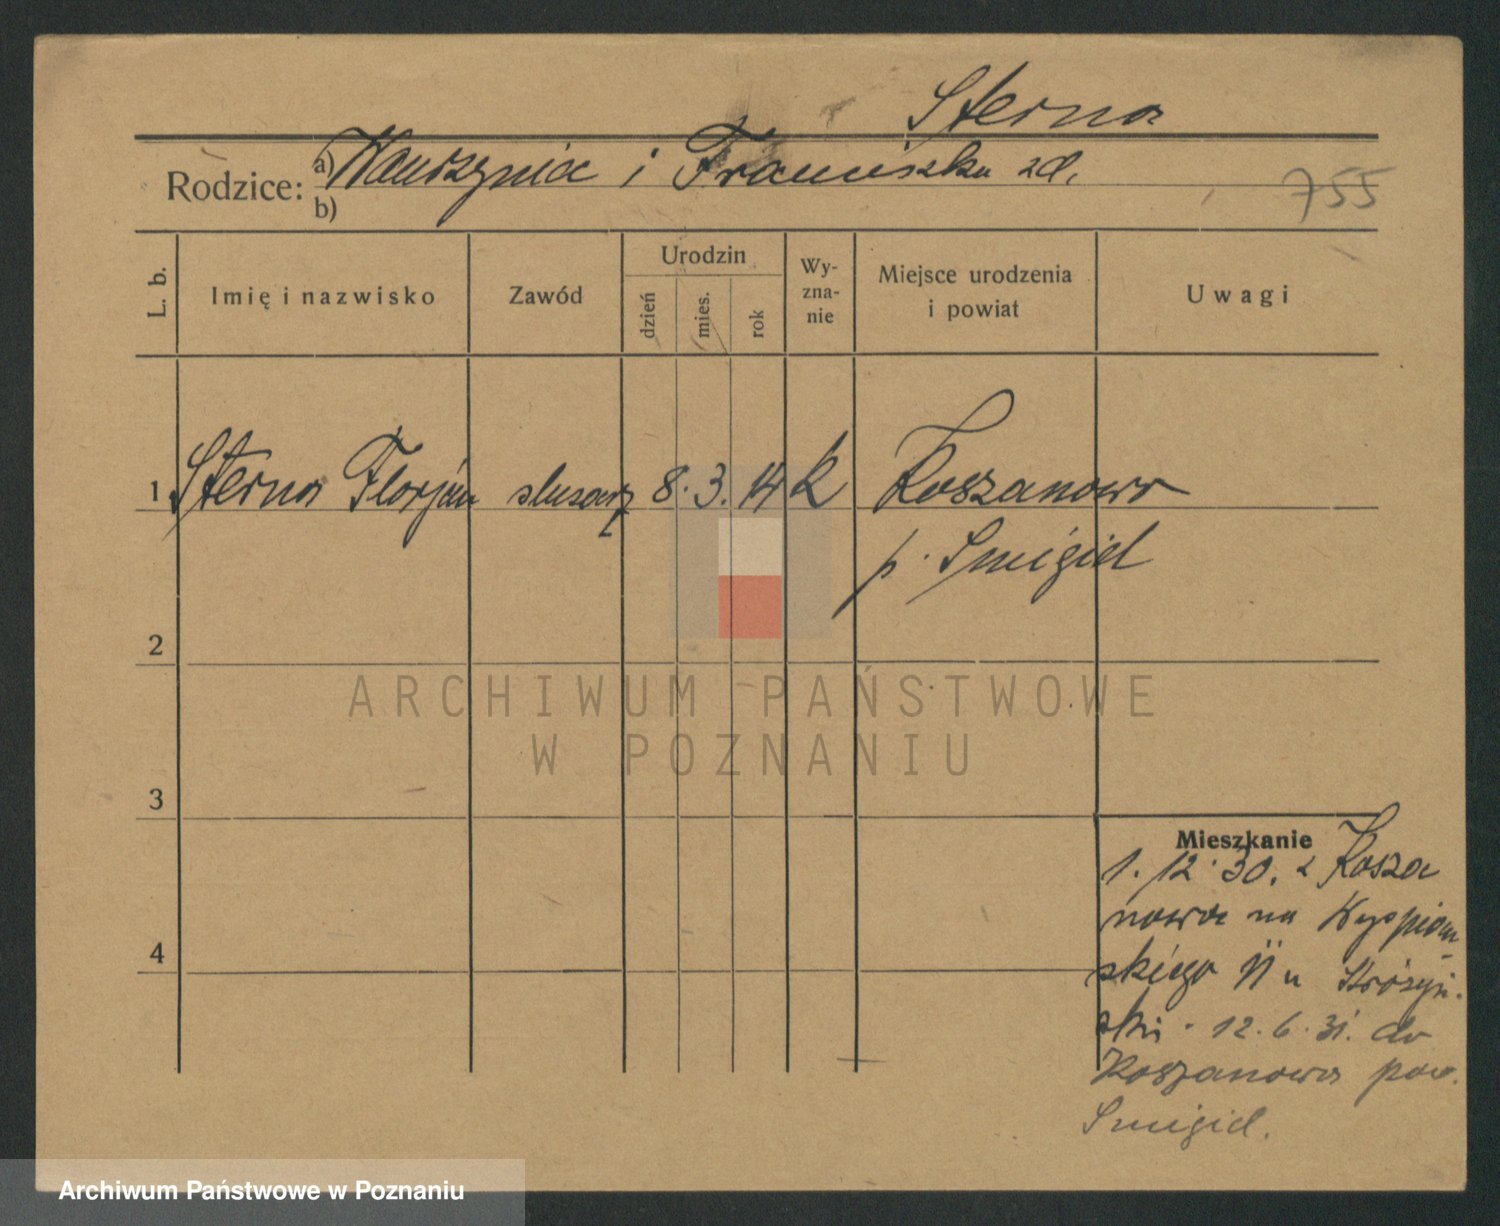 Sterna
Rodzice: a) Wawrzynia i Franciszka zd.
b)
755
L. b. Imię i nazwisko Zawód Urodzin dzień mies. rok Wy-zna-nie Miejsce urodzenia i powiat Uwagi
1 Sterna Florjan slusarz 8. 3. 14 k Koszanowo
p. Smigiel
2
ARCHIWUM PAŃSTWOWE
W POZNANIU
3
Mieszkanie
1. 12. 30. z Kosza
nowa na Wyspiań
skiego 11 u
ski. 12. 6. 31. do
Koszanowa pow.
Smigiel.
4
Archiwum Państwowe w Poznaniu